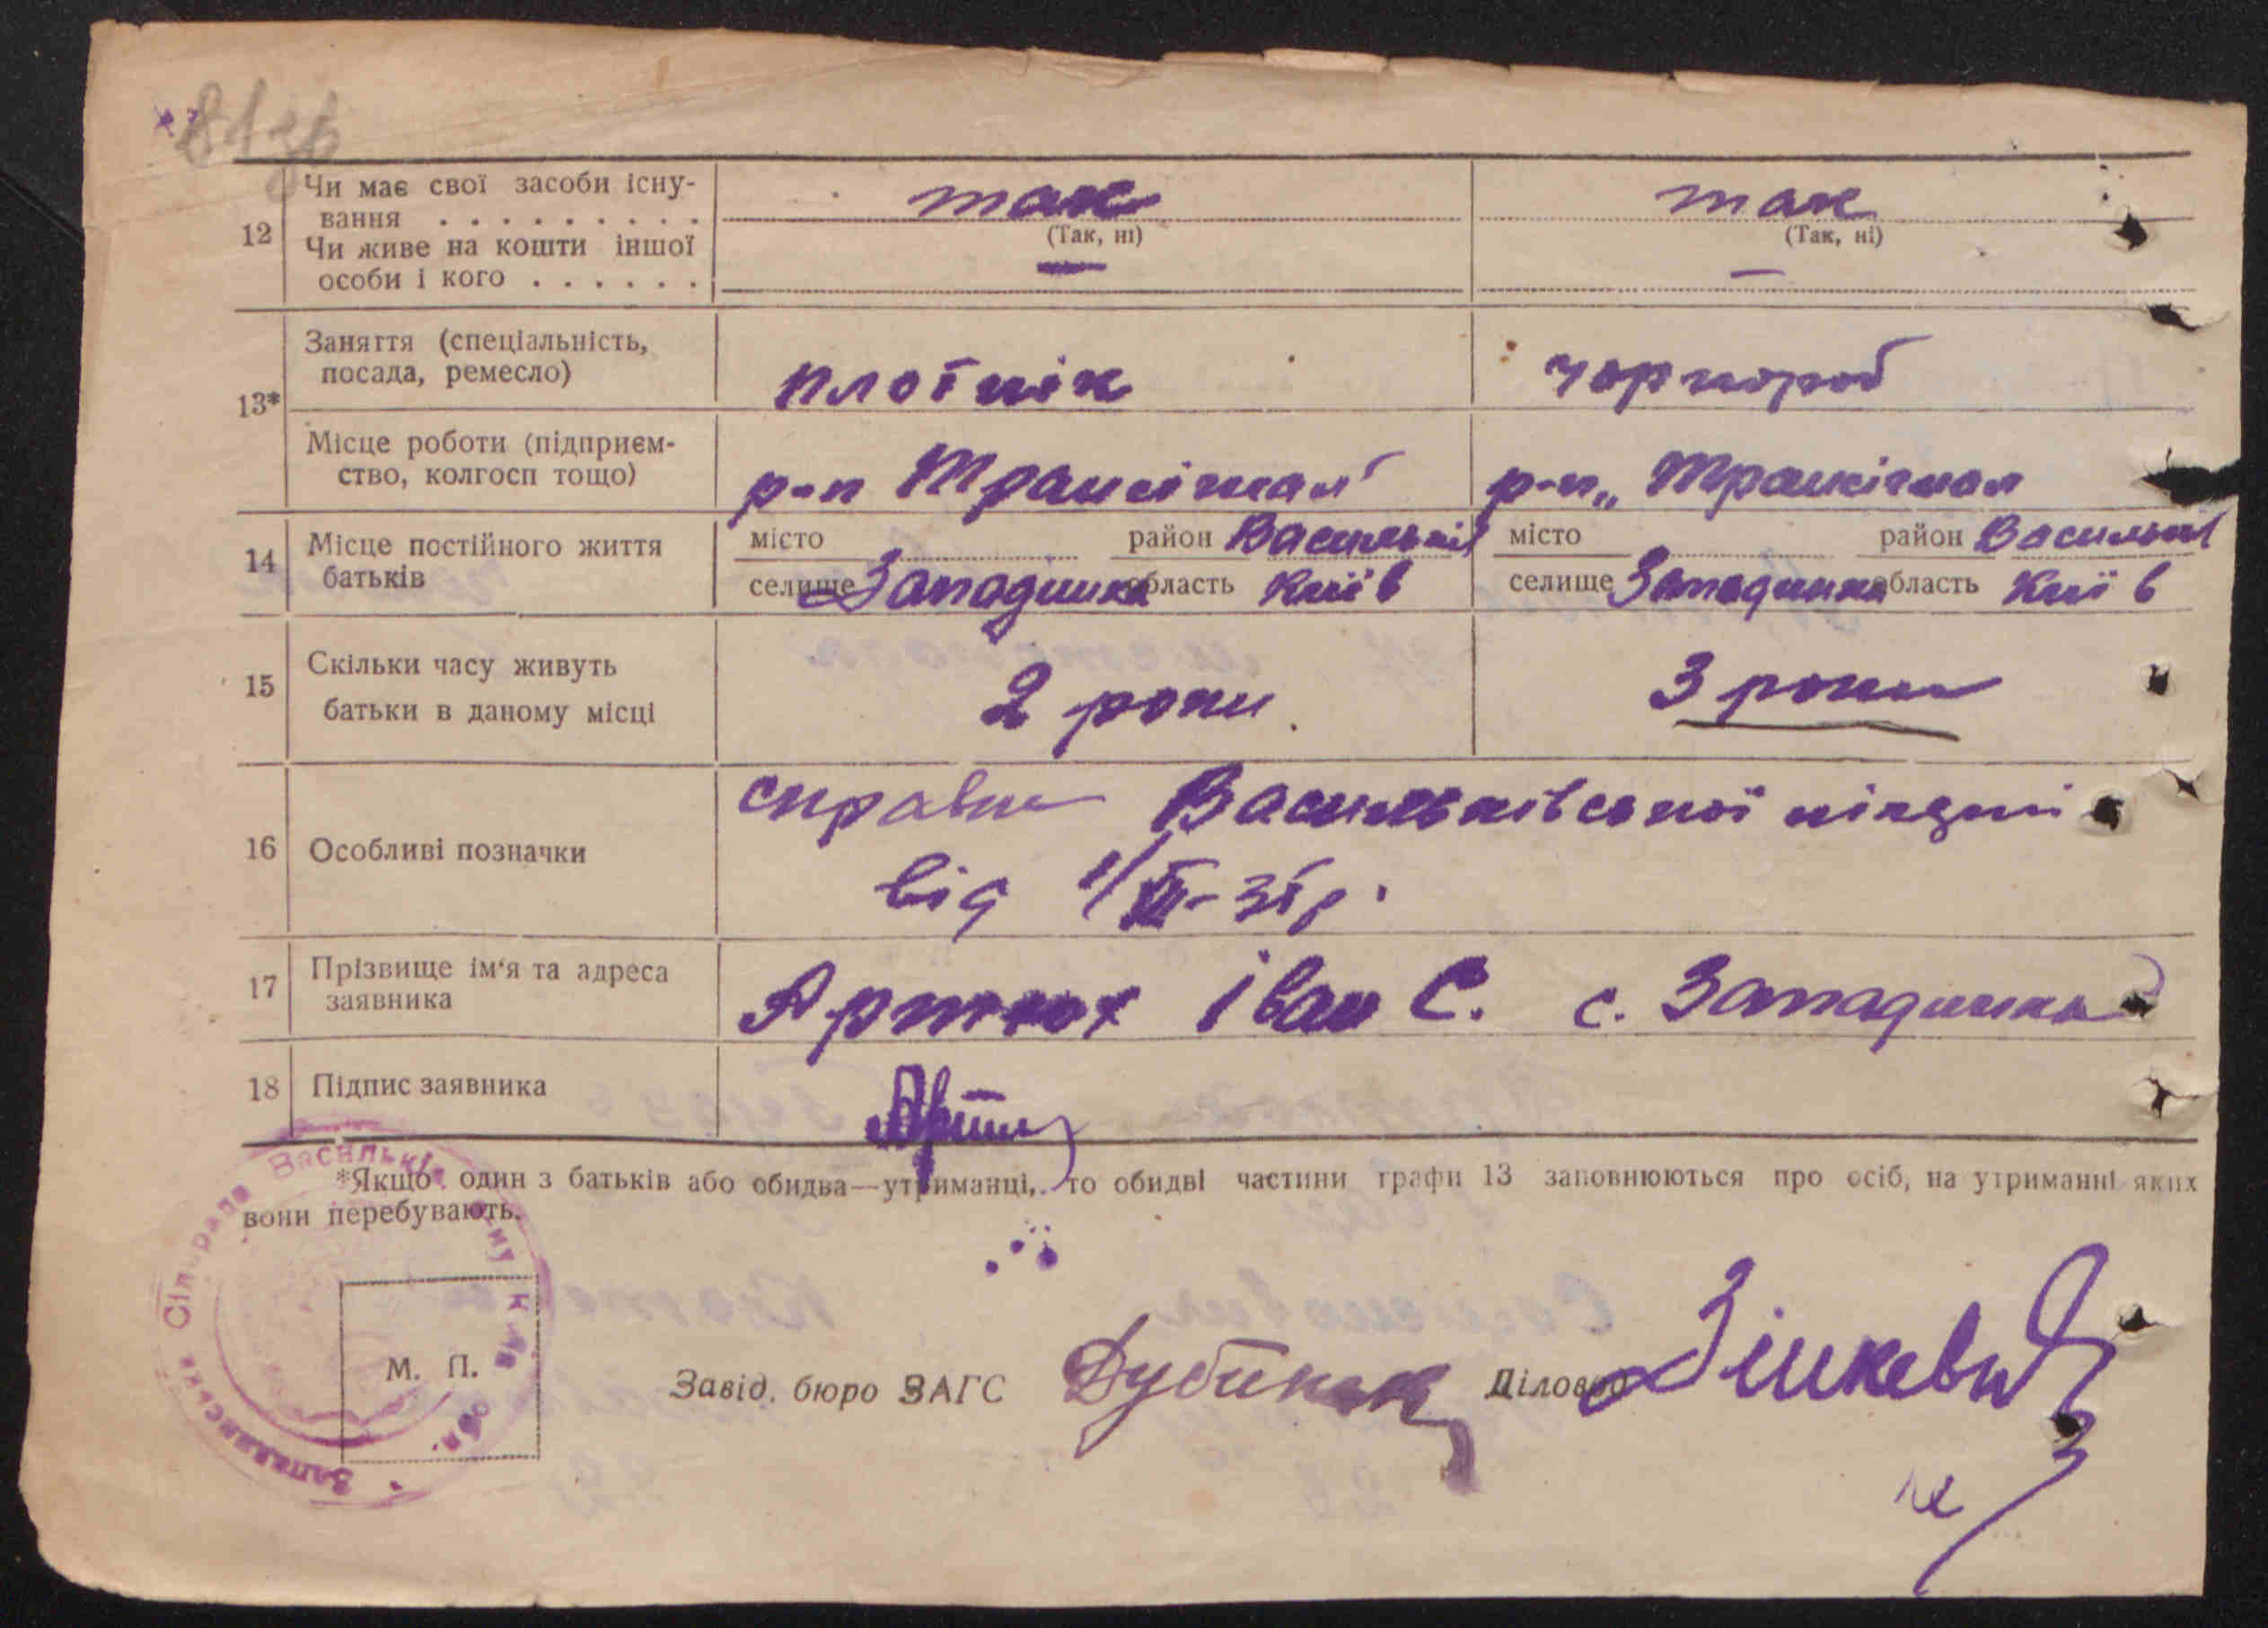 81зв
12 Чи має свої засоби існу-
вання . . . . . . . . . так так
(Так, ні) (Так, ні)
Чи живе на кошти іншої
особи і кого . . . . . . — —
13* Заняття (спеціальність,
посада, ремесло) плотнік чорнороб
Місце роботи (підприєм-
ство, колгосп тощо) р-п р-п „
14 Місце постійного життя
батьків
місто район Васильків місто район Васильків
селище Западинка область Київ селище Западинка область Київ
15 Скільки часу живуть
батьки в даному місці 2 роки 3 роки
16 Особливі позначки справка Васильківської
від 1/
17 Прізвище ім'я та адреса
заявника Артюх Іван С. с. Западинка
18 Підпис заявника
*Якщо один з батьків або обидва—утриманці, то обидві частини графи 13 заповнюються про осіб, на утриманні яких
вони перебувають.
М. П.
Завід. бюро ЗАГС Діловод
Западинська Сільрада Васильків Київ обл.